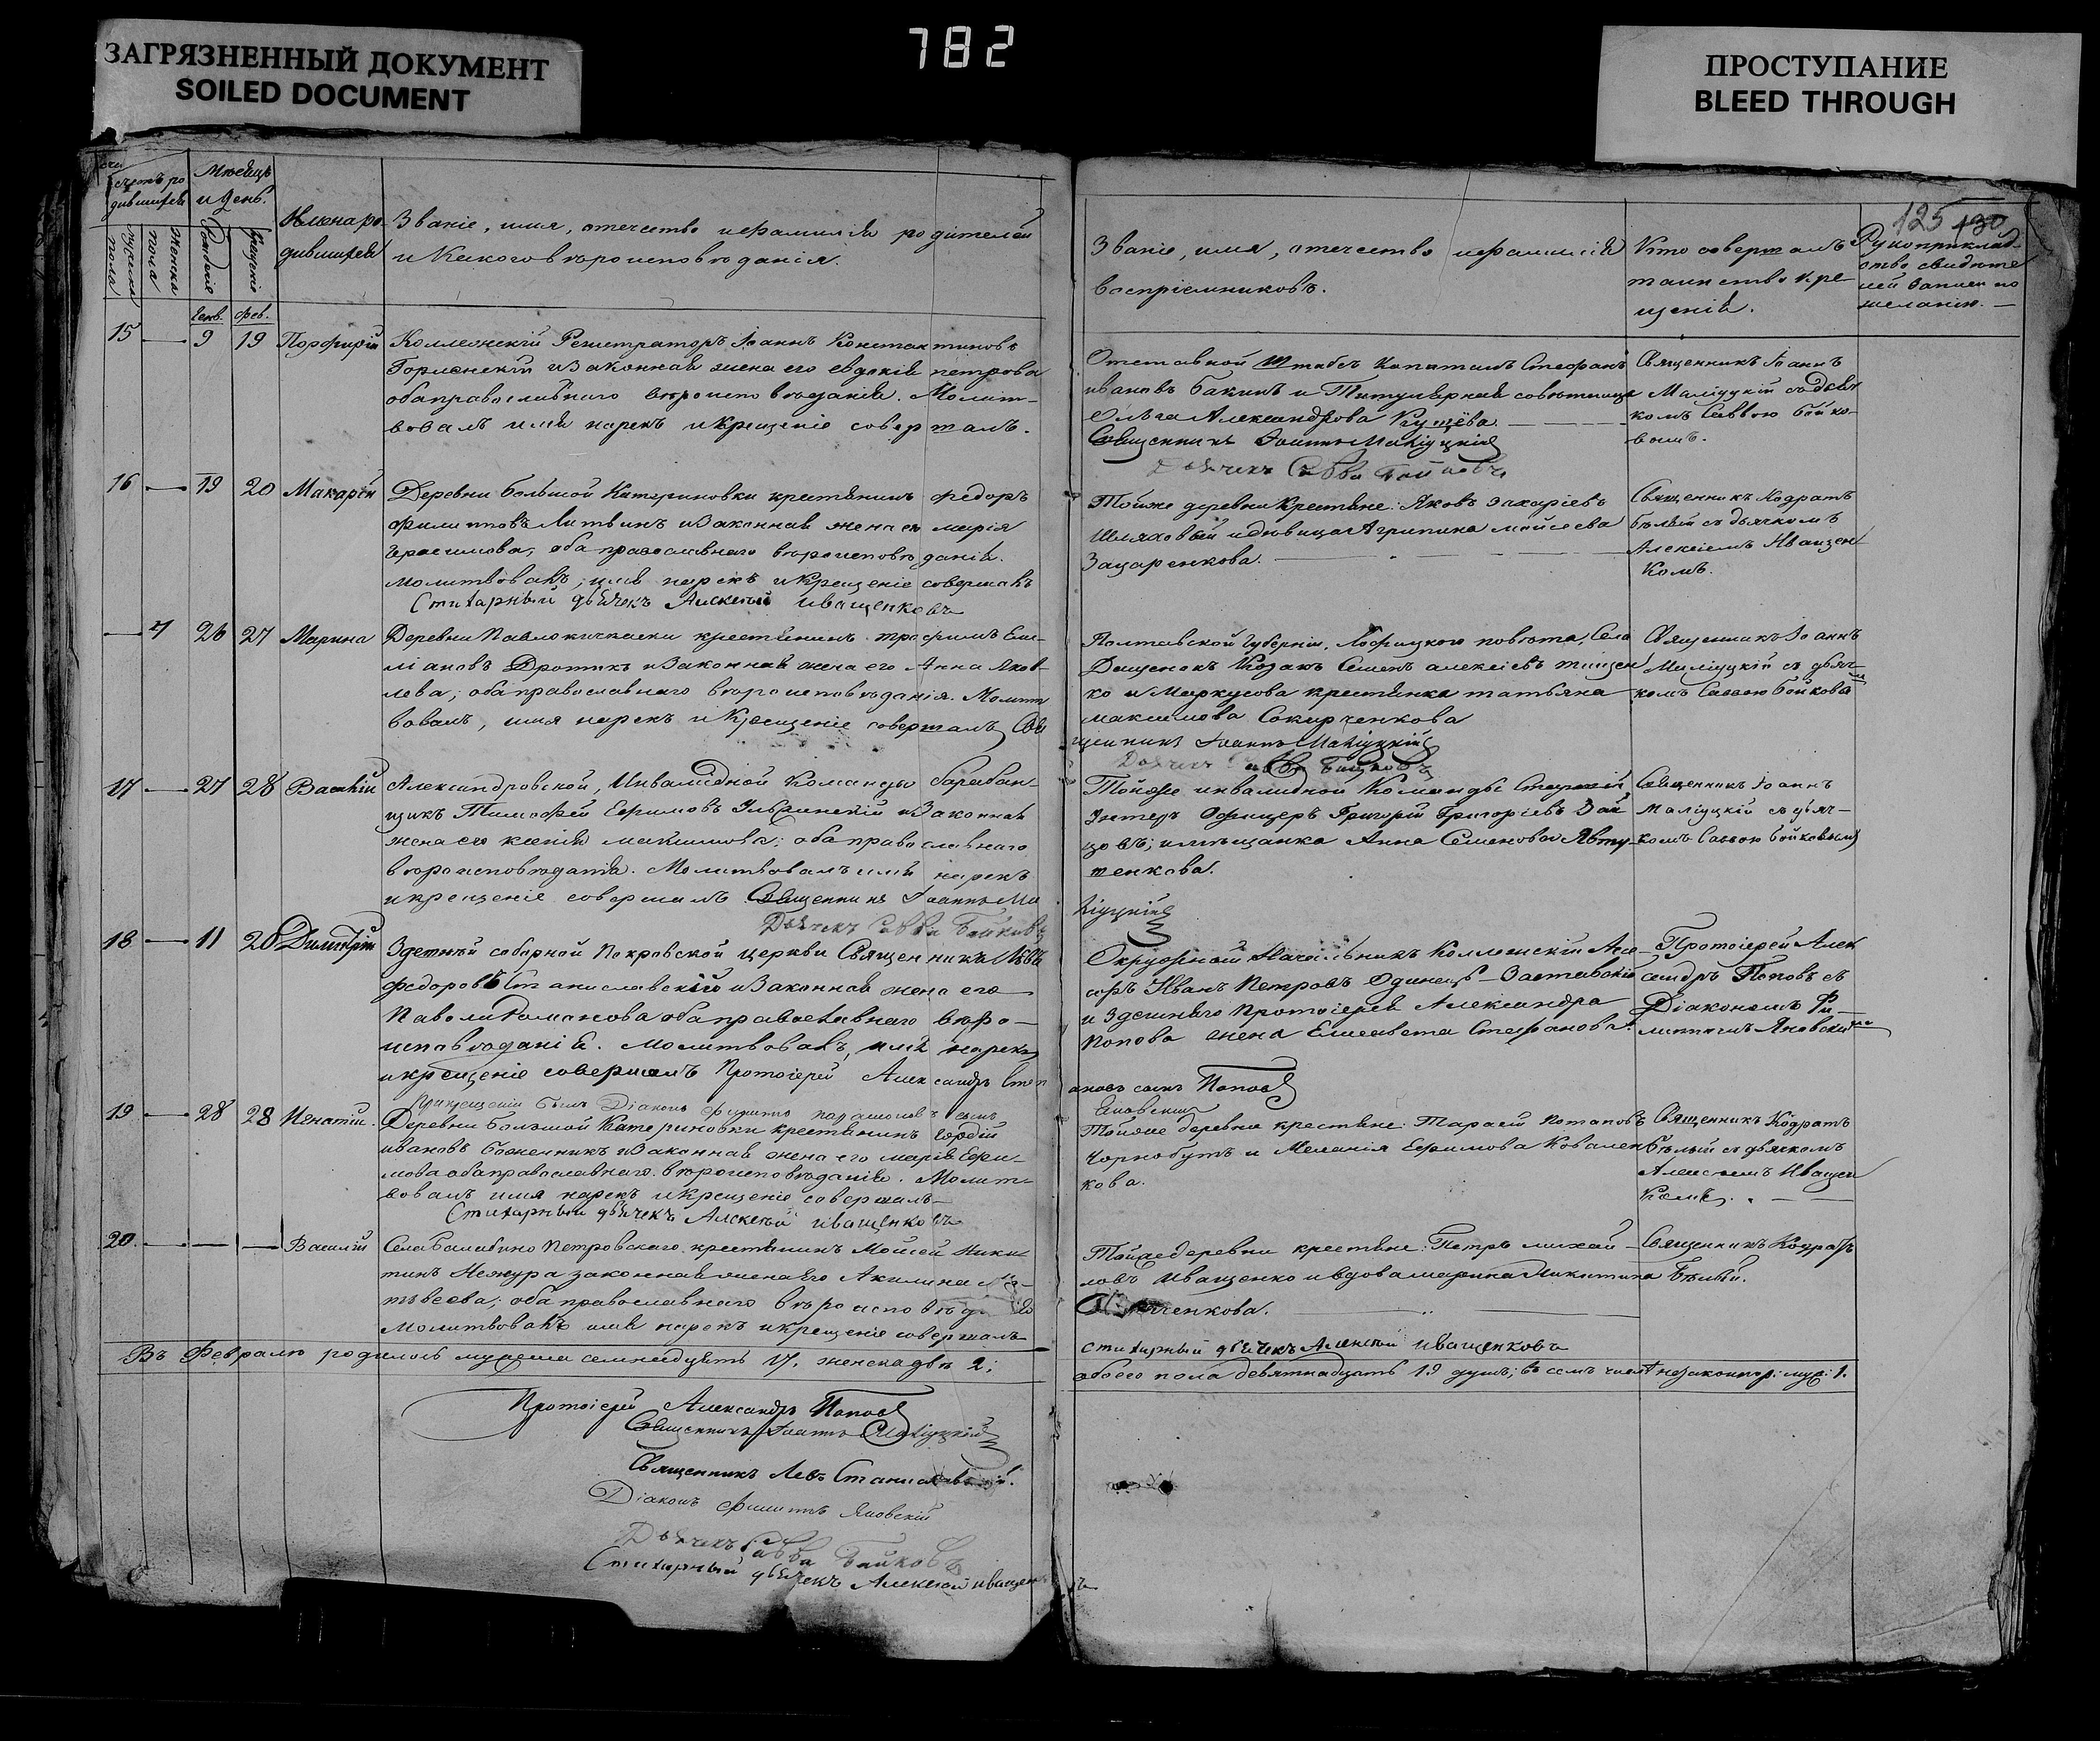 ЗАГРЯЗНЕННЫЙ ДОКУМЕНТ
SOILED DOCUMENT
782
ПРОСТУПАНИЕ
BLEED THROUGH
125 130
счетъ ро
дившихся
мужеска пола
женска пола
Мѣсяцъ
и день.
Рожденіе
Крещеніе
Имена ро
дившихся
Званіе, имя, отечество и фамилія родителей
и какого вѣроисповѣданія.
Званіе, имя, отечество и фамилія
воспріемниковъ.
Кто совершалъ
таинство кре
щенія.
Рукоприклад
ство свидѣте
лей записи по
желанію.
Генв. Фев.
15 — 9 19 Порфирій
Коллежскій Регистраторъ Іоаннъ Константиновъ
Горленскій и законная жена его Евдокія Петрова
оба православнаго вѣроисповѣданія. Молит-
вовалъ имя нарекъ и крещеніе совершалъ.
Отставной Штабсъ Капитанъ Стефанъ
Ивановъ Бакинъ и Титулярная совѣтница
Ольга Александрова Кущева
Священникъ Іоаннъ Маліуцкій
Дьячекъ Савва Бойковъ
Священникъ Іоаннъ
Маліуцкій съ дьяч
комъ Саввою Бойко-
вымъ.
16 — 19 20 Макарій
Деревни Большой Катериновки крестьянинъ Федоръ
Филиповъ Литвинъ и законная жена его Марія
Герасимова, оба православнаго вѣроисповѣданія.
Молитвовалъ, имя нарекъ и крещеніе совершалъ
Стихарный дьячекъ Алексѣй Иващенковъ
Тойже деревни крестьяне: Яковъ Захаріевъ
Шляховый и вдовица Агрипина Мойсеева
Зацаренкова.
Священникъ Кодратъ
Бѣлый съ дьячкомъ
Алексѣемъ Иващен
комъ.
— 4 26 27 Марина
Деревни Павлокичкаски крестьянинъ Трофимъ Еме-
ліановъ Дротикъ и законная жена его Анна Яков-
лева; оба православнаго вѣроисповѣданія. Молит
вовалъ, имя нарекъ и крещеніе совершалъ Свя
Полтавской Губерніи, Лофицкого повѣта, Села
Козакъ Семенъ Алексіевъ Тищен
ко и Маркусова крестьянка Татьяна
Максимова Сокирченкова
щенникъ Іоаннъ Маліуцкій
Дьячекъ Савва Бойковъ
Священникъ Іоаннъ
Маліуцкій съ дьяч-
комъ Саввою Бойковымъ
17 — 27 28 Василій
Александровской, Инвалидной Команды барабан-
щикъ Тимофей Ефимовъ и законная
жена его Ксенія Максимова: оба православнаго
вѣроисповѣданія. Молитвовалъ имя нарекъ
и крещеніе совершалъ Священникъ Іоаннъ Ма
Дьячекъ Савва Бойковъ
Тойже инвалидной Команды Старшій
Унтеръ Офицеръ Григорій Григоріевъ Зай
цовъ; и мѣщанка Анна Семенова Явту-
шенкова.
ліуцкій
Священникъ Іоаннъ
Маліуцкій съ дьяч-
комъ Саввою Бойковымъ
18 — 11 28 Димитрій
Здешней соборной Покровской церкви Священникъ Левъ
Федоровъ Станиславскій и законная жена его
Павола Романова оба православнаго вѣро-
исповѣданія. Молитвовалъ, имя нарекъ
и крещеніе совершалъ Протоіерей Александръ Степ
ановъ сынъ Поповъ
При крещеніи былъ Діаконъ Филиппъ сынъ
Яновскій
Окружной Начальникъ Коллежскій Асе-
соръ Иванъ Петровъ Одинецъ-Заставскій
и здешняго Протоіерея Александра
Попова жена Елисавета Стефанова.
Протоіерей Алек
сандръ Поповъ съ
Діакономъ Фи-
липпомъ Яновскимъ
19 — 28 28 Игнатій.
Деревни Большой Катериновки крестьянинъ Гордій
Ивановъ и законная жена его Марія Ефи-
мова оба православнаго вѣроисповѣданія. Молит-
вовалъ имя нарекъ и крещеніе совершалъ
Стихарный дьячекъ Алексѣй Иващенковъ
Тойже деревни крестьяне: Тарасій Потаповъ
Чорнобутъ и Меланія Ефимова Ковален
кова.
Священникъ Кодратъ
Бѣлый съ дьячкомъ
Алексѣемъ Иващен
комъ.
20. — — — Василій
Села Балабино Петровскаго крестьянинъ Мойсей Ники-
тинъ Нежура законная жена его Акилина Ма-
твеева; оба православнаго вѣроисповѣд
Молитвовалъ имя нарекъ и крещеніе совершалъ
Тойже деревни крестьяне: Петръ Михай-
ловъ Иващенко и вдова Марина Никитина
ченкова.
Стихарный дьячекъ Алексѣй Иващенковъ
Священникъ Кодратъ
Бѣлый.
Въ Февралѣ родилось мужеска семнадцать 17, женска двѣ 2;
обоего пола девятнадцать 19 душъ; въ семъ числѣ незаконнор: муж: 1.
Протоіерей Александръ Поповъ
Священникъ Іоаннъ Маліуцкій
Священникъ Левъ Станиславскій.
Діаконъ Филиппъ Яновскій
Дьячекъ Савва Бойковъ
Стихарный дьячекъ Алексѣй Иващенковъ